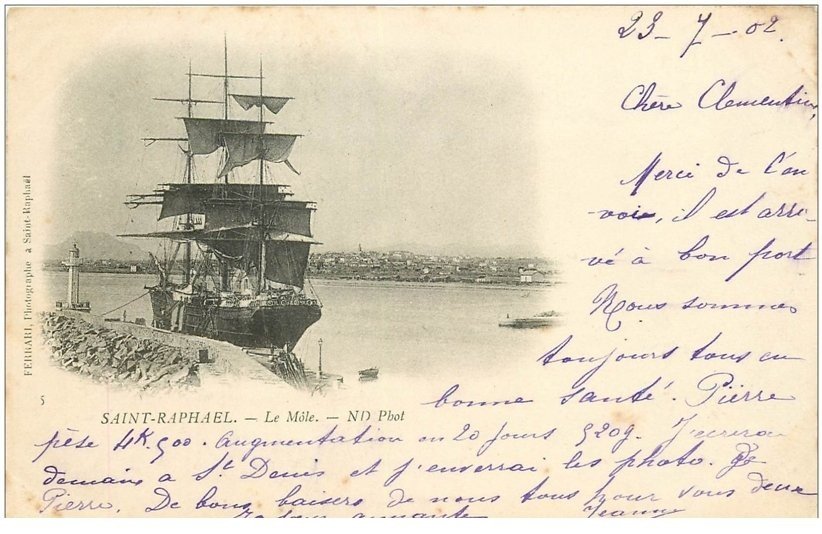 23 - 7 - 02.
Chère Clementine,
Merci de l'en
voie, il est arri
vé à bon port
Nous sommes
toujours tous en
bonne santé. Pierre
FERRARI, Photographe à Saint-Raphaël
5
SAINT-RAPHAEL. — Le Môle. — ND Phot
pèse 4K,500. Augmentation en 20 jours 520g. J'ecrirai
demain à St Denis et j'enverrai les photo. de
Pierre. De bons baisers de nous tous pour vous deux
Jeanne